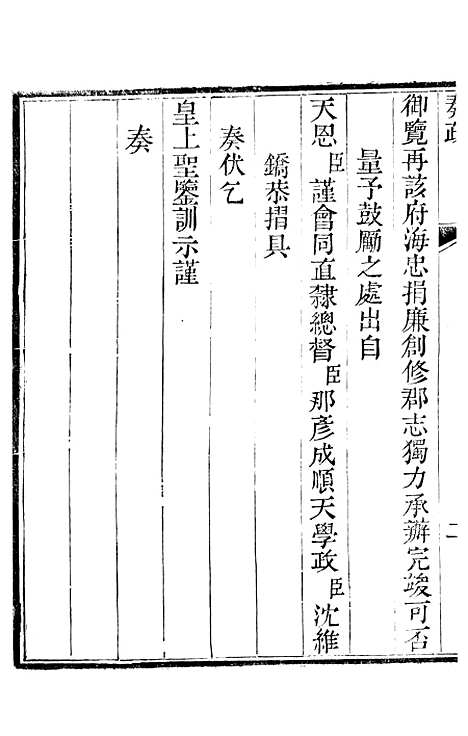 奏疏 二
御覽再該府海忠捐廉創修郡志獨力承辦完竣可否
量予鼓勵之處出自
天恩臣謹會同直隸總督臣那彥成順天學政臣沈維
鐈恭摺具
奏伏乞
皇上聖鑒訓示謹
奏